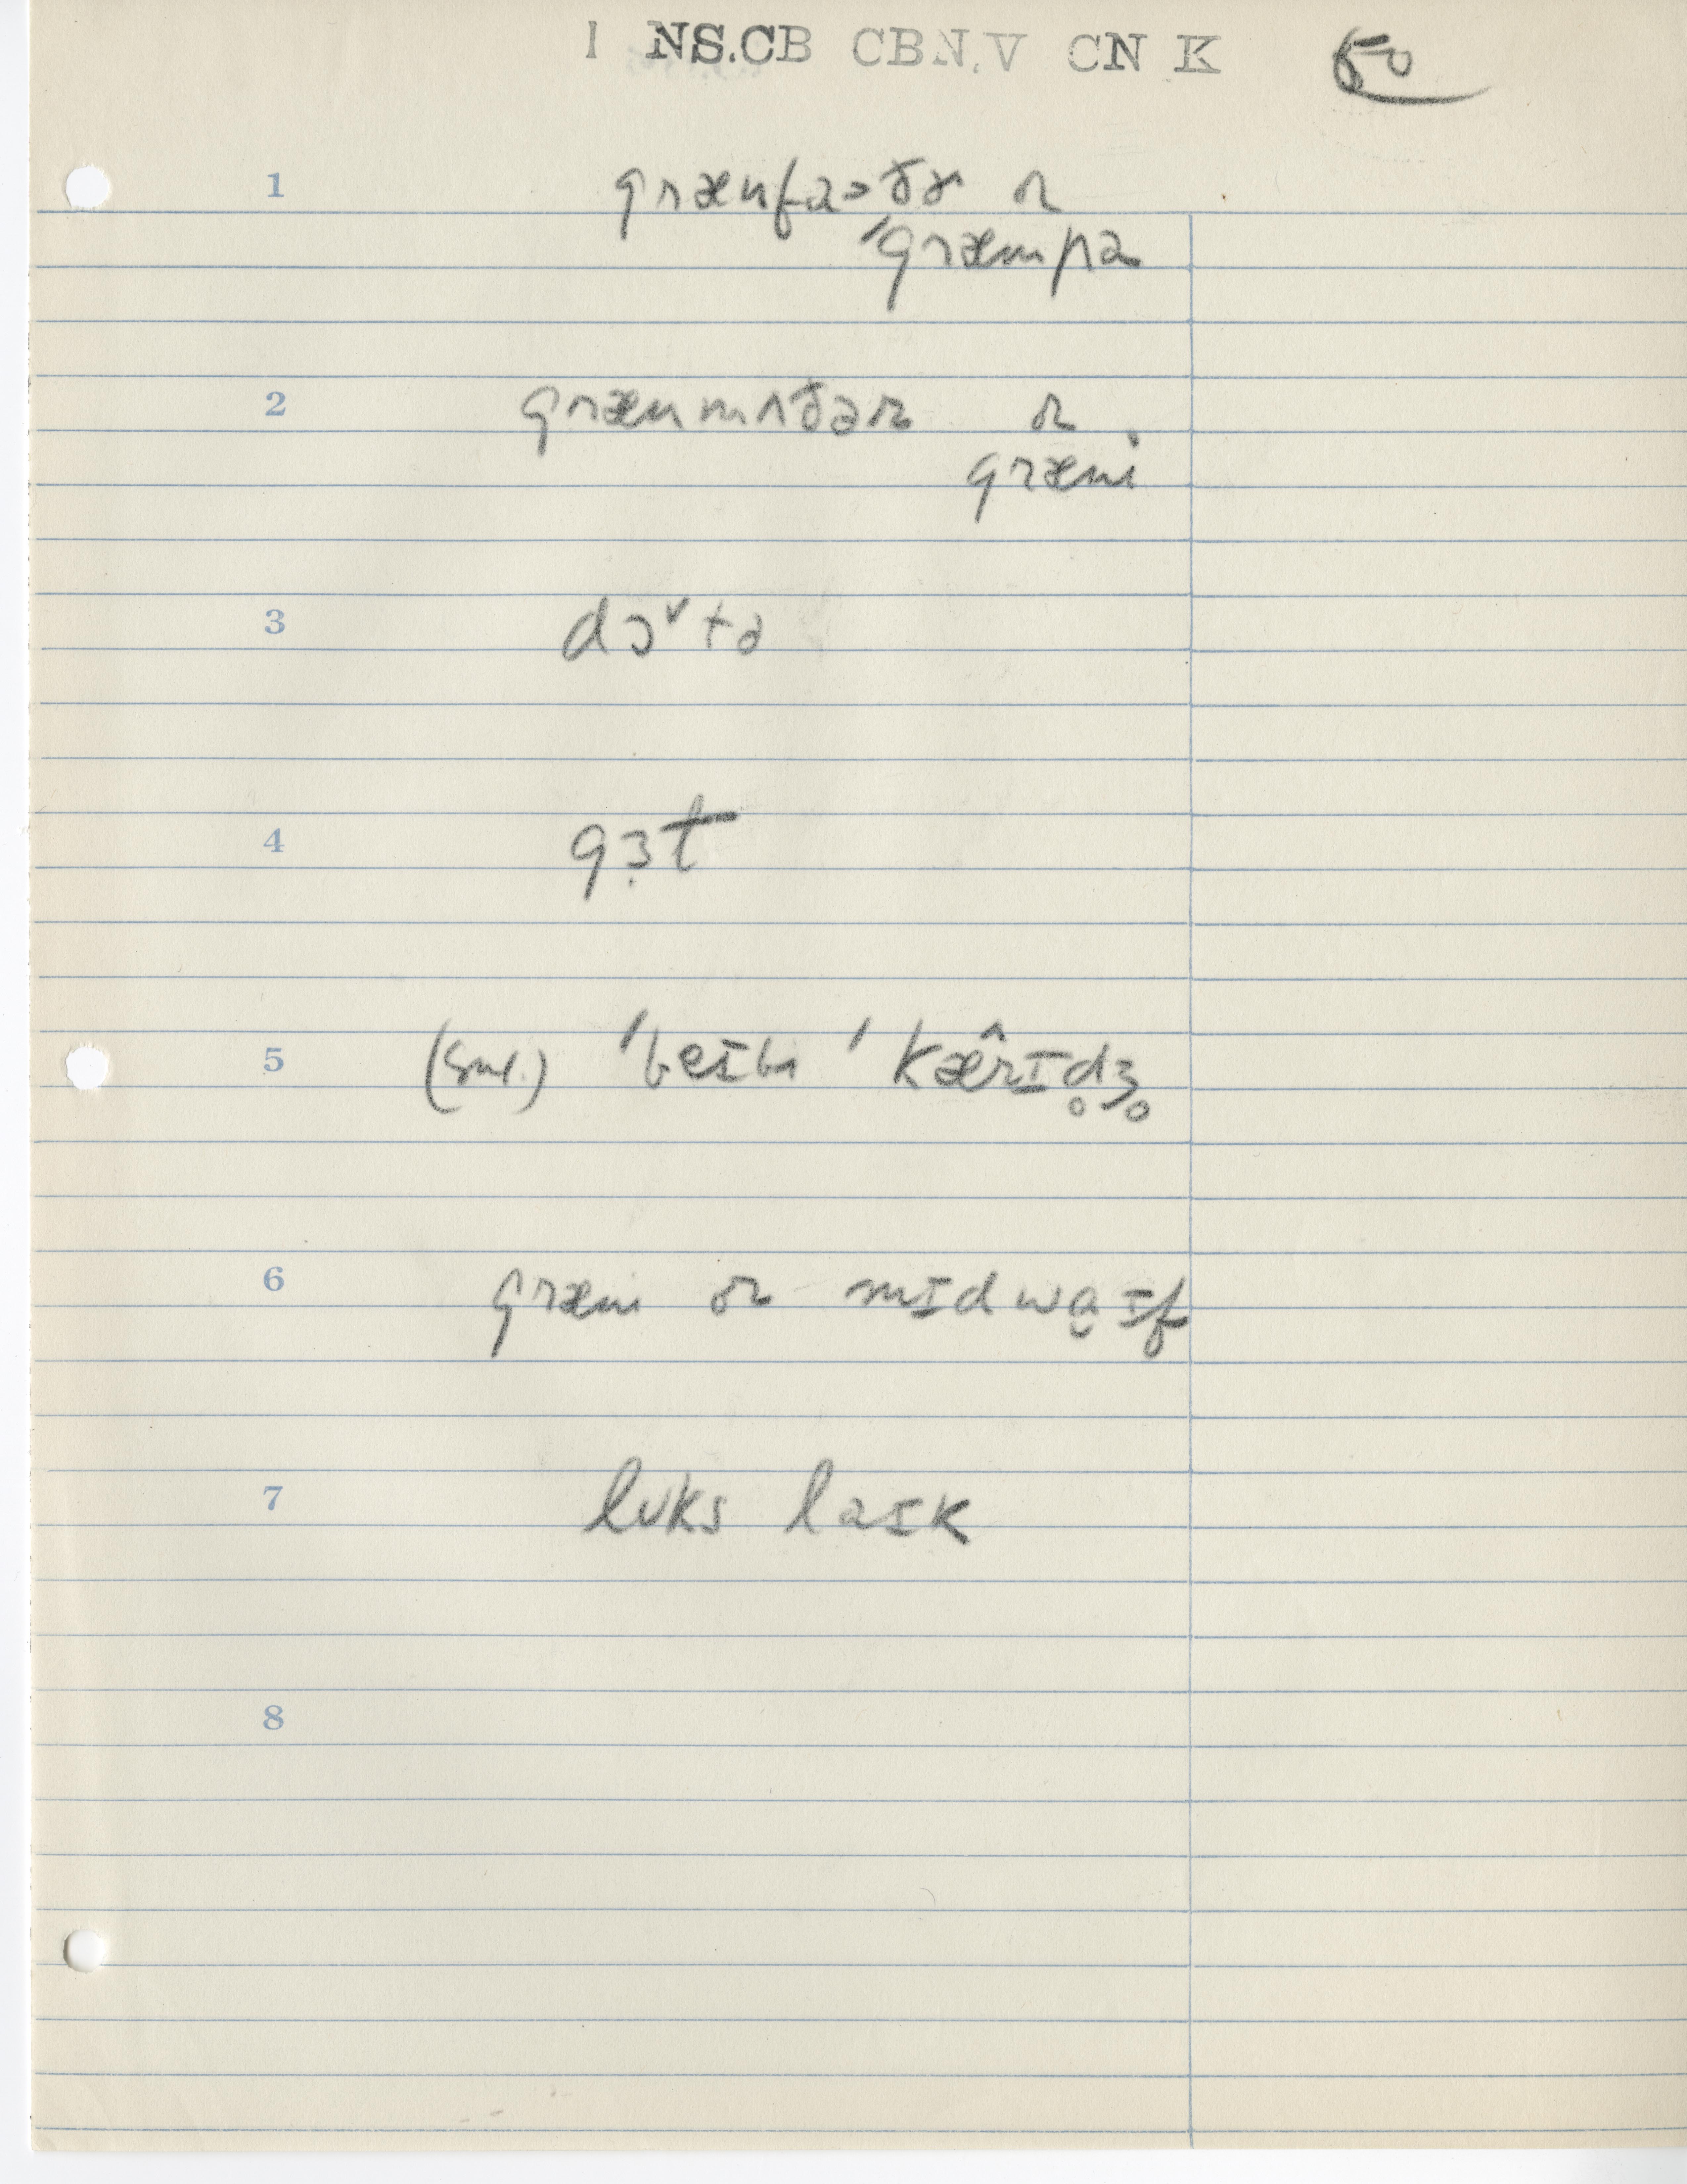 1 NS.CB CBN.V CN K 50
1 grænfaəðɚ ɚ
ˈgræmpa
2 grænmʌðər ɚ
græni
3 dɔ˅tə
4 gɜ̣t
5 ˈbeɪbɪ ˈkæ̂rɪd̥ʒ̥
6 græni ɚ mɪdwa̯ɪf
7 lʊks laɪk
8